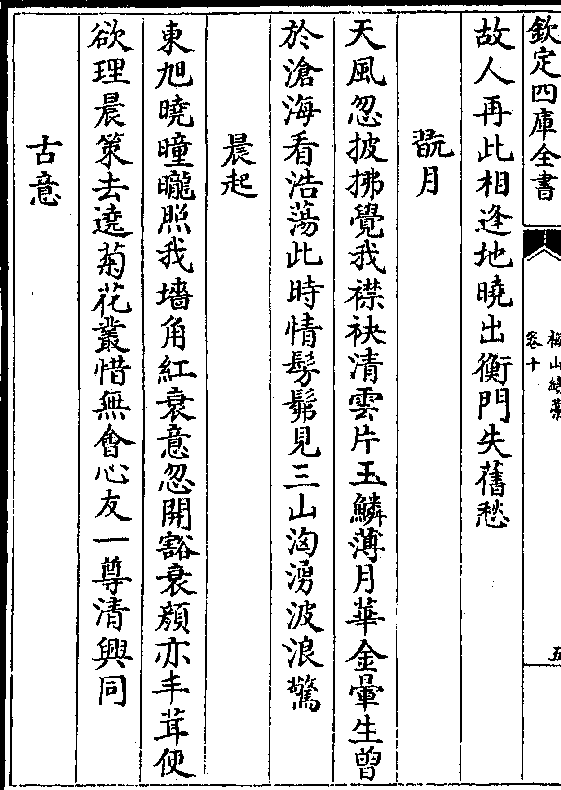 欽定四庫全書
梅山續藁
卷十
五
故人再此相逢地曉出衡門失舊愁
翫月
天風忽披拂覺我襟袂清雲片玉鱗薄月華金暈生曾
於滄海看浩蕩此時情髣髴見三山洶湧波浪驚
晨起
東旭曉曈曨照我墻角紅衰意忽開豁衰顏亦丰茸便
欲理晨策去遶菊花叢惜無會心友一尊清興同
古意